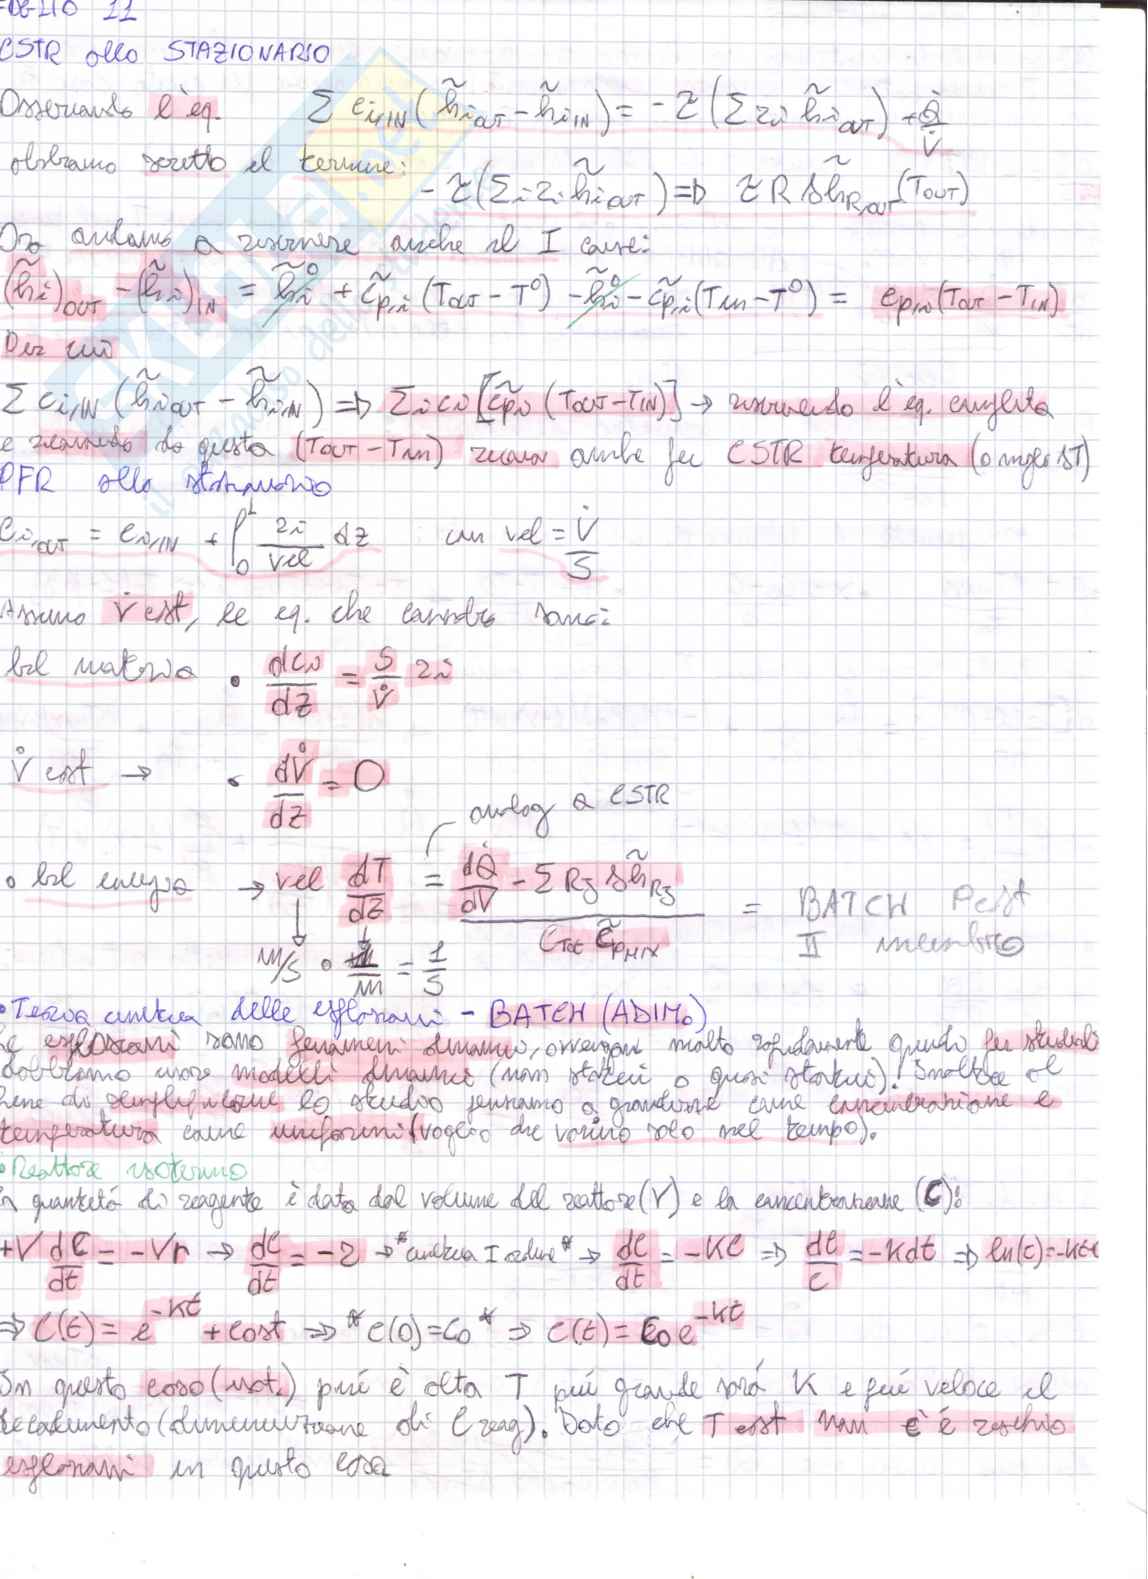 FOGLIO 11
CSTR allo STAZIONARIO
Osservando l'eq. Σ c_{i,IN} (h̃_{i OUT} - h̃_{i IN}) = -τ (Σ r_i h̃_{i OUT}) + Q̇/V̇
abbiamo scritto il termine:
-τ (Σ_i r_i h̃_{i OUT}) ⇒ τ R Δh̃_{R,OUT} (T_OUT)
Ora andiamo a riscrivere anche il I come:
(h̃_i)_OUT - (h̃_i)_IN = h̃_i° + c̃_{p,i} (T_OUT - T°) - h̃_i° - c̃_{p,i} (T_IN - T°) = c_{p,i} (T_OUT - T_IN)
Per cui
Σ c_{i,IN} (h̃_{i OUT} - h̃_{i IN}) ⇒ Σ_i c_i [c̃_{pi} (T_OUT - T_IN)] → riscrivendo l'eq. completa
e ricavando da questa (T_OUT - T_IN) ricavo anche per CSTR temperatura (o meglio ΔT)
PFR allo stazionario
c_{i,OUT} = c_{i,IN} + ∫_0^L r_i/vel dz con vel = V̇/S
Assumo V̇ cost, le eq. che cambio sono:
bil materia • dc_i/dz = S/V̇ r_i
V̇ cost → • dV̇/dz = 0
analog a CSTR
• bil energia → vel dT/dz = (dQ̇/dV - Σ R_j Δh̃_{Rj}) / (c_Tot c̃_{pMIX}) = BATCH P cost II membro
m/s • 1/m = 1/s
• Teoria cinetica delle esplosioni - BATCH (ADIM.)
Le esplosioni sono fenomeni dinamici, avvengono molto rapidamente quindi per studiarli
dobbiamo usare modelli dinamici (non statici o quasi statici). Inoltre al
fine di semplificarne lo studio pensiamo a grandezze come concentrazione e
temperatura come uniformi (voglio che varino solo nel tempo).
• Reattore isotermo
La quantità di reagente è data dal volume del reattore (V) e la concentrazione (C):
+V dC/dt = -Vr → dC/dt = -r → *cinetica I ordine* → dC/dt = -KC ⇒ dC/C = -Kdt ⇒ ln(c) = -Kt+c
⇒ C(t) = e^{-Kt} + cost ⇒ *C(0) = C_0* ⇒ C(t) = C_0 e^{-Kt}
In questo caso (isot.) più è alta T più grande sarà K e più veloce il
decadimento (diminuizione di C reag). Dato che T cost non c'è rischio
esplosioni in questo caso